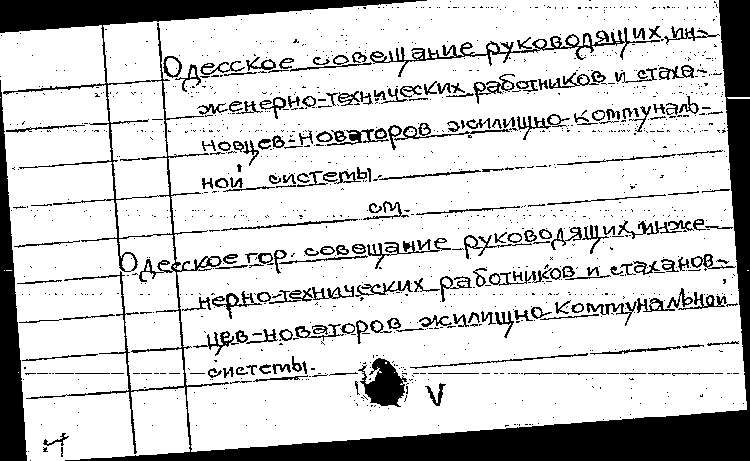 Одесское совещание руководящих, ин-
женерно-технических работников и стаха-
новцев-новаторов жилищно-коммуналь-
ной системы.
см.
Одесское гор. совещание руководящих, инже-
нерно-технических работников и стаханов-
цев-новаторов жилищно коммунальной
системы.
V